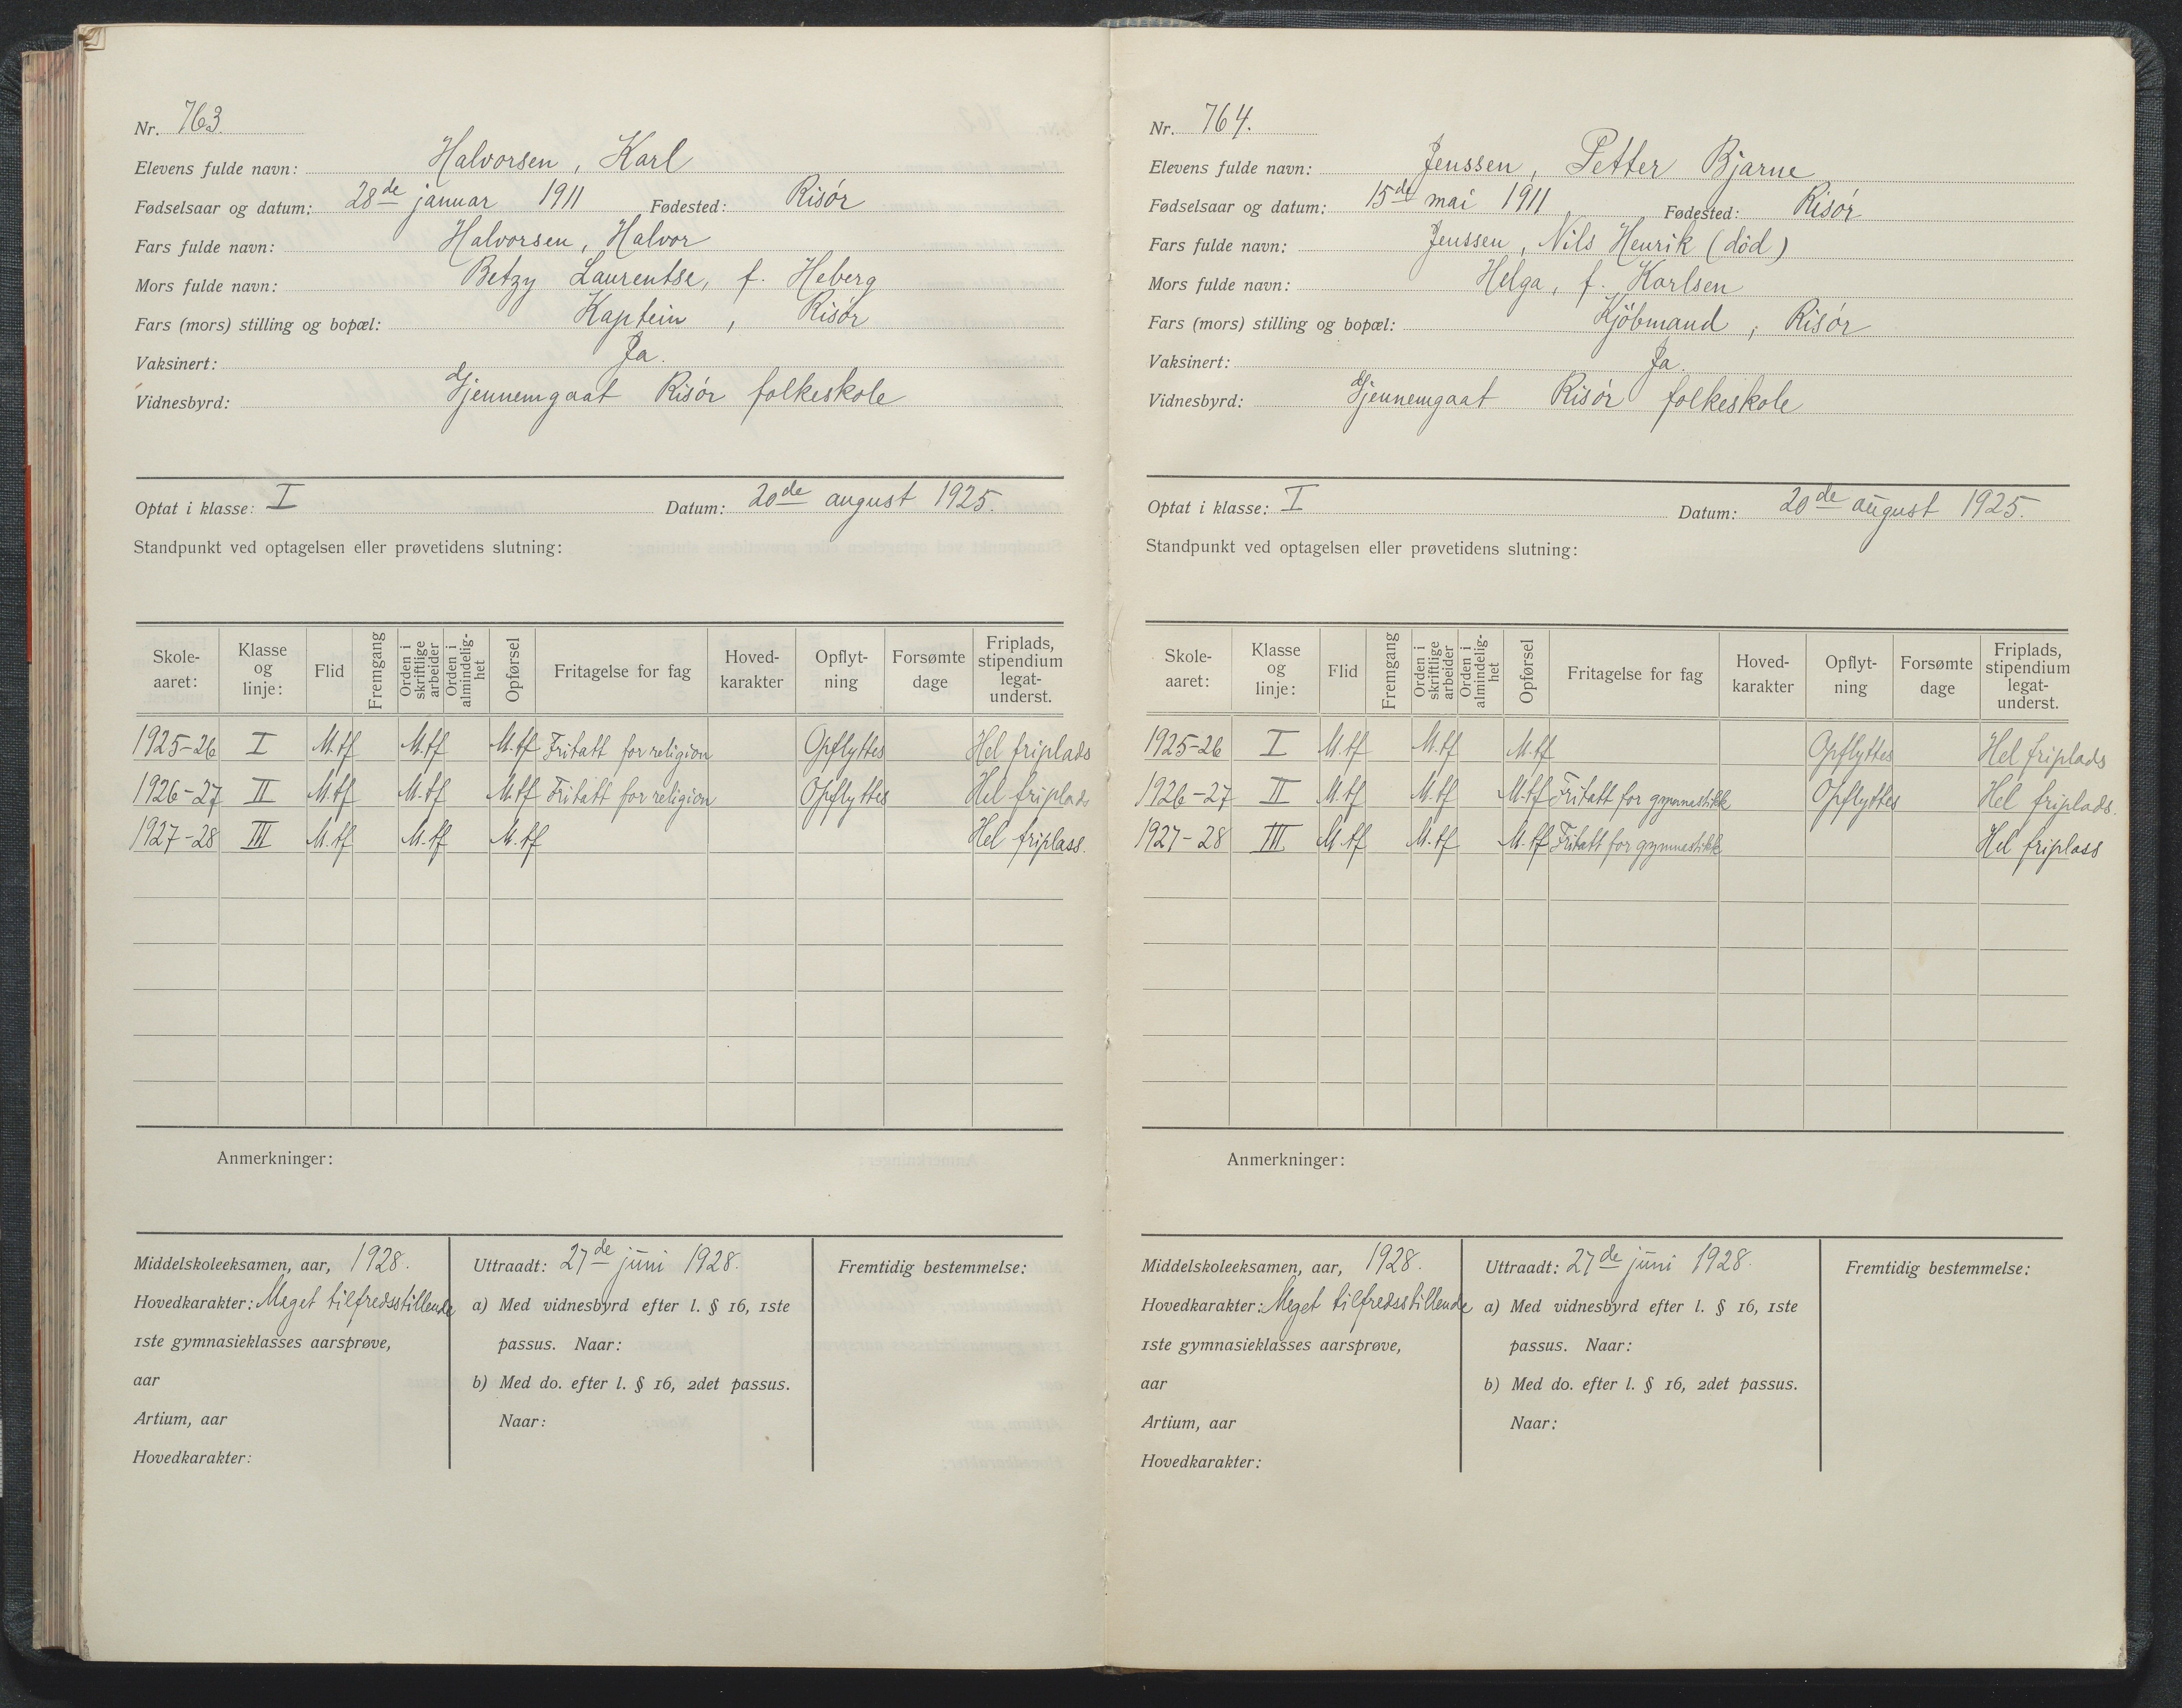 Nr. 763.
Elevens fulde navn: Halvorsen, Karl
Fødselsaar og datum: 28de januar 1911 Fødested: Risör
Fars fulde navn: Halvorsen, Halvor
Mors fulde navn: Betzy Laurentse, f. Heberg
Fars (mors) stilling og bopæl: Kaptein, Risör
Vaksinert: Ja.
Vidnesbyrd: Gjennemgaat Risör folkeskole
Optat i klasse: I Datum: 20de august 1925.
Standpunkt ved optagelsen eller prøvetidens slutning:
Skole-aaret: Klasse og linje: Flid Fremgang Orden i skriftlige arbeider Orden i almindelig-het Opførsel Fritagelse for fag Hoved-karakter Opflyt-ning Forsømte dage Friplads, stipendium legat-underst.
1925-26 I M.tf M.tf M.tf Fritatt for religion Opflyttes Hel friplads
1926-27 II M.tf M.tf M.tf Fritatt for religion Opflyttes Hel friplads
1927-28 III M.tf M.tf M.tf Hel friplass.
Anmerkninger:
Middelskoleeksamen, aar, 1928.
Hovedkarakter: Meget tilfredsstillende
1ste gymnasieklasses aarsprøve,
aar
Artium, aar
Hovedkarakter:
Uttraadt: 27de juni 1928.
a) Med vidnesbyrd efter l. § 16, 1ste
passus. Naar:
b) Med do. efter l. § 16, 2det passus.
Naar:
Fremtidig bestemmelse:
Nr. 764.
Elevens fulde navn: Jenssen, Petter Bjarne
Fødselsaar og datum: 15de mai 1911 Fødested: Risör
Fars fulde navn: Jenssen, Nils Henrik (död)
Mors fulde navn: Helga, f. Karlsen
Fars (mors) stilling og bopæl: Kjöbmand, Risör
Vaksinert: Ja.
Vidnesbyrd: Gjennemgaat Risör folkeskole
Optat i klasse: I Datum: 20de august 1925.
Standpunkt ved optagelsen eller prøvetidens slutning:
Skole-aaret: Klasse og linje: Flid Fremgang Orden i skriftlige arbeider Orden i almindelig-het Opførsel Fritagelse for fag Hoved-karakter Opflyt-ning Forsømte dage Friplads, stipendium legat-underst.
1925-26 I M.tf M.tf M.tf Opflyttes Hel friplads
1926-27 II M.tf M.tf M.tf Fritatt for gymnastikk Opflyttes Hel friplads.
1927-28 III M.tf M.tf M.tf Fritatt for gymnastikk Hel friplass
Anmerkninger:
Middelskoleeksamen, aar, 1928.
Hovedkarakter: Meget tilfredsstillende
1ste gymnasieklasses aarsprøve,
aar
Artium, aar
Hovedkarakter:
Uttraadt: 27de juni 1928.
a) Med vidnesbyrd efter l. § 16, 1ste
passus. Naar:
b) Med do. efter l. § 16, 2det passus.
Naar:
Fremtidig bestemmelse: